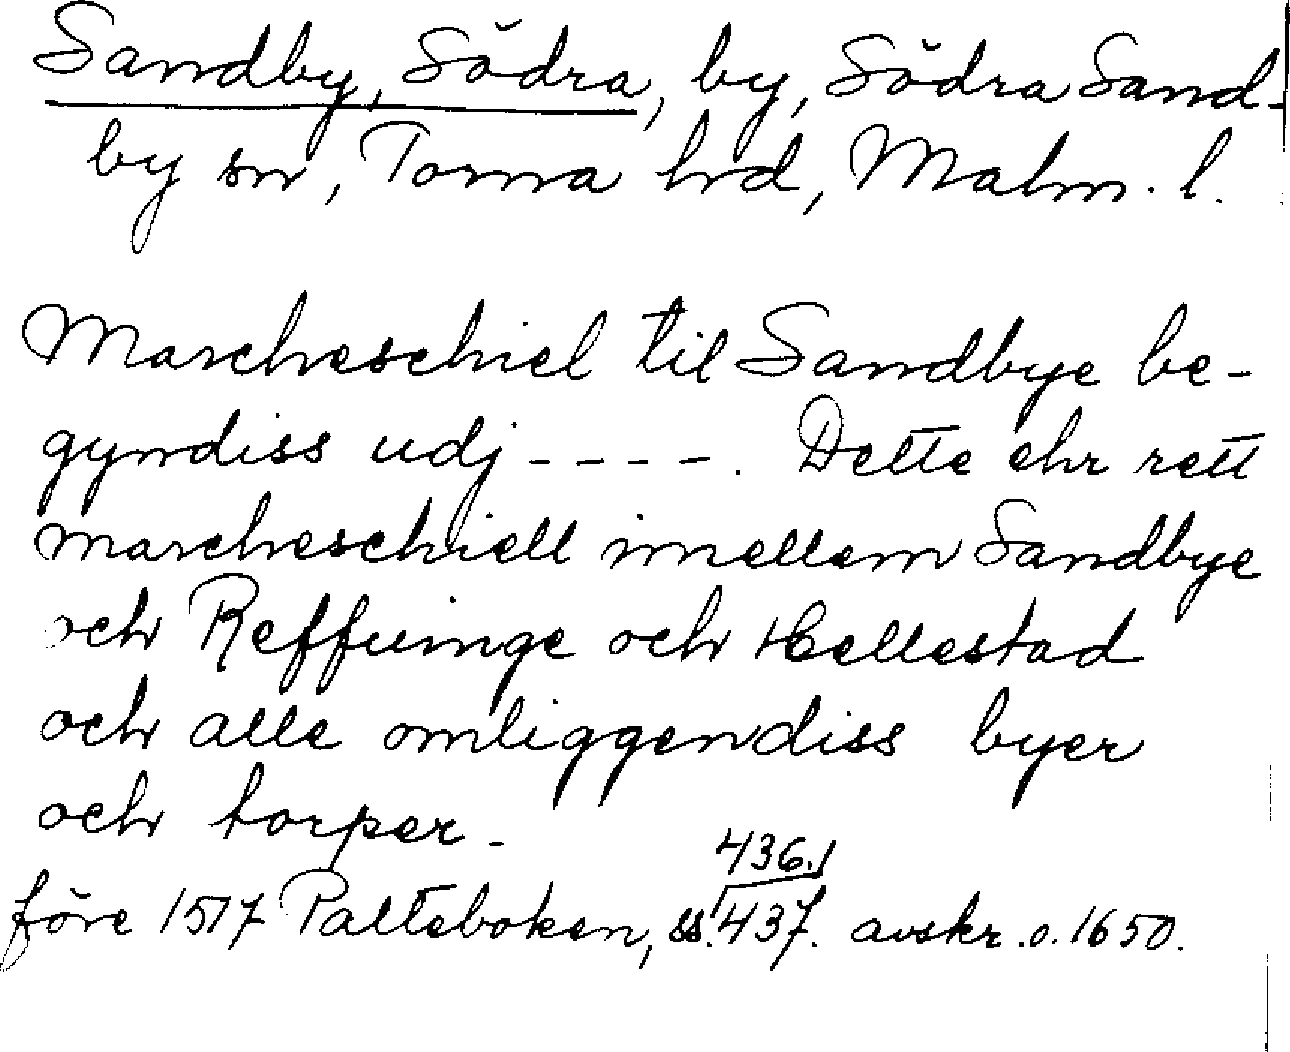 Sandby, Södra, by, Södra Sand-
by sn, Torna hrd, Malm. l.
Marcheschiel til Sandbye be-
gyndiss udj - - - - . Dette ehr rett
marcheschiell imellem Sandbye
och Reffuinge och Hellestad
och alle omliggendiss byer
och torper.
436.
före 1517 Palteboken, ss. 437. avskr. o. 1650.